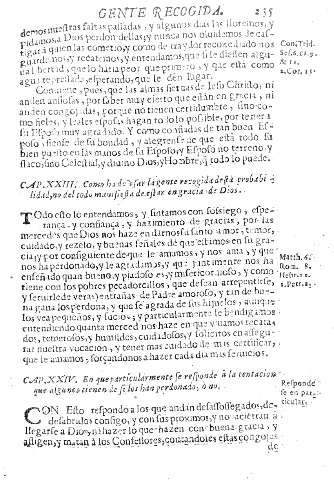 GENTE RECOGIDA. 255
demos nuestras faltas passadas, y algunos dias las lloremos, y
pidamos a Dios perdon dellas, y nunca nos olvidemos de cas-
tigar à quien las cometio, y como de traydor reconciliado nos
guardemos, y recatemos, y entendamos, que si le diessen algu-
na libertad, que lo haria peor que primero, y que està como
agua represada, esperando, que le den lugar.
Conviene, pues, que las almas siervas de Jesu Christo, ni
anden ansiosas, por saber muy cierto que estàn en gracia, ni
anden congojadas, por que no tienen certidumbre, sino co-
mo fieles, y leales esposas hagan todo lo possible, por tener à
su Esposo muy agradado. Y como confiadas de tan buen Es-
poso, fiense de su bondad, y alegrense de que està todo su
bien puesto en las manos de su Esposo, y Esposo no terreno, y
flaco, sino Celestial, y divino Dios, y Hombre, q̃ todo lo puede.
CAP. XXIII. Como ha de usar la gente recogida desta probabi-
lidad, no del todo manifiesta de estar en gracia de Dios.
TOdo esto lo entendamos, y sintamos con sossiego, espe-
rança, y confiança, y hazimiento de gracias, por las
mercedes que Dios nos haze en darnos su santo amor, temor,
cuidado, y zelo, y buenas señales de que estamos en su gra-
cia, y por consiguiente de que le amamos, y nos ama, y que
nos ha perdonado, y le agradamos, y que juntamente nos ha
enseñado quan bueno, y piadoso es, y misericordioso, y como
tiene con los pobres pecadorcillos, que dessean arrepentirse,
y servirle de veras, entrañas de Padre amoroso, y tan de bue-
na gana los perdona, y que se agrada de sus hijuelos, aunque
los vea pequeños, y sucios, y particularmente le bendigamos
entendiendo quanta merced nos haze en que vivamos recata-
dos, temerosos, y humildes, cuidadosos, y solicitos en assegu-
rar nuestra vocacion, y tener mas cuidado de mas certificar,
que le amamos, forçandonos à hazer cada dia mas servicios.
CAP. XXIV. En que particularmente se responde à la tentacion
que algunos tienen de si los han perdonado, ò no.
CON Esto respondo à los que andan desassossegados, de-
desabridos consigo, y con sus proximos, y no aciertan à
llegarse à Dios, ni hazer lo que hazen con buena gracia, y
afligen, y matan à los Confessores, contandoles estas congojas
de
Conc. Trid.
Sess. 6. c. 9.
& 12.
1. Cor. 15.
Matth. 6.
Rom. 8.
Hebr. 12.
1. Petr. 1.
Responde
se en par-
ticular.